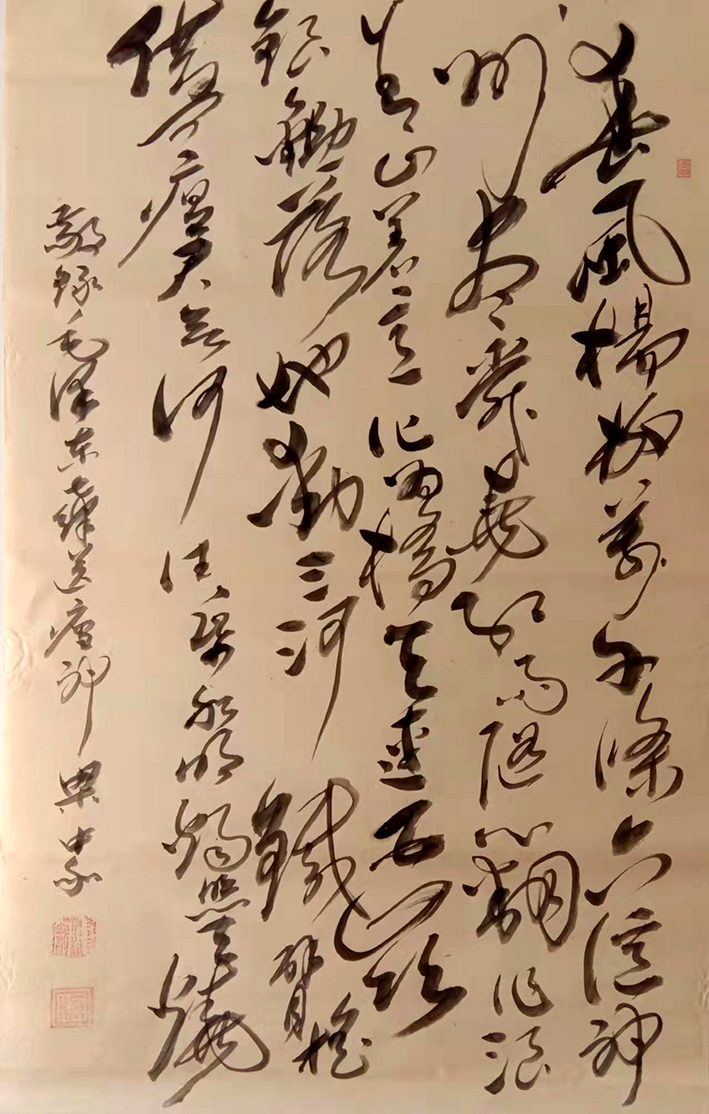 春風楊柳萬千條六億神
州盡舜堯紅雨隨心翻作浪
青山着意化為橋天連五嶺
銀鋤落地動三河鐵臂搖
借問瘟君欲何往紙船明燭照天燒
敬錄毛澤東詩送瘟神